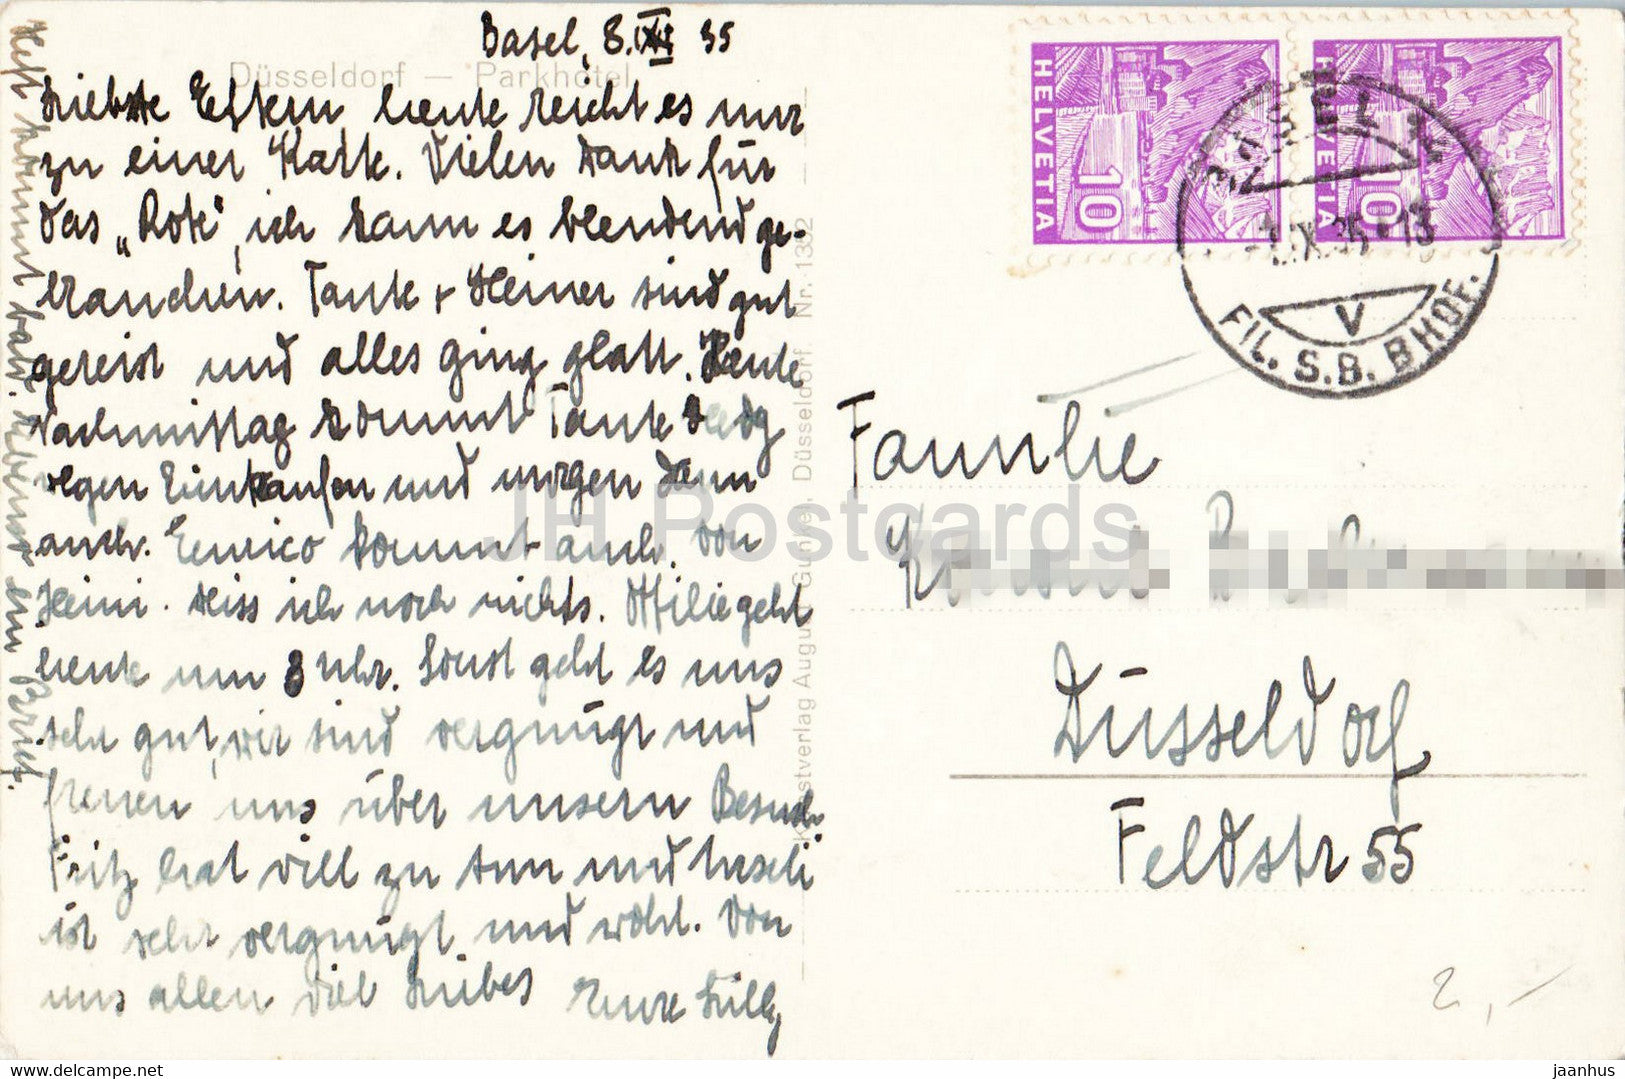 Basel, 8. XII 35
Düsseldorf — Parkhotel
Liebste Eltern heute reicht es nur
zu einer Karte. Vielen Dank für
das „Rote", ich kann es blendend ge-
brauchen. Tante + Heiner sind gut
gereist und alles ging glatt. Heute
Nachmittag kommt Tante
wegen Einkaufen und morgen dann
auch. Enrico kommt auch. Von
Heini weiss ich noch nichts. Ottilie geht
heute um 8 Uhr. Sonst geht es uns
sehr gut, wir sind vergnügt und
freuen uns über unsern Besuch.
Fritz hat viel zu tun und Urseli
ist sehr vergnügt und wohl. Von
uns allen viel Liebes Eure Lilly
Heft kommt bald. Nebenst ein Brief.
Kunstverlag August Günkel, Düsseldorf. Nr. 1332
HELVETIA
10
HELVETIA
10
BASEL 2
35-13
V
FIL. S.B. BHOF.
Familie
Düsseldorf
Feldstr 55
2,-
JH Postcards
www.delcampe.net
jaanhus